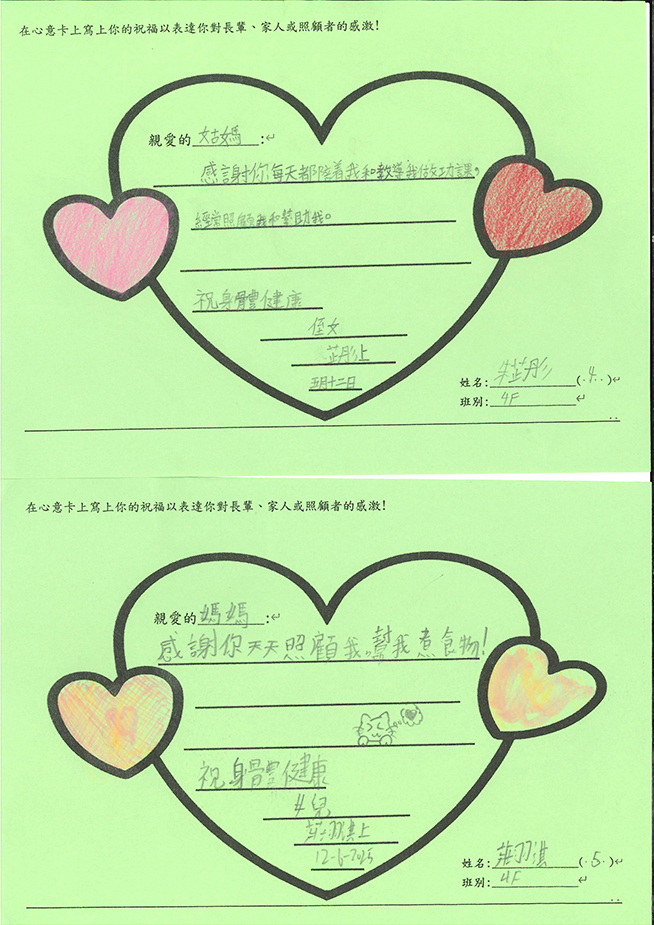 在心意卡上寫上你的祝福以表達你對長輩、家人或照顧者的感激!
親愛的姑媽:
感謝你每天都陪着我和教導我做功課,
經常照顧我和幫助我。
祝身體健康
侄女
芷彤上
五月十二日
姓名:朱芷彤(4)
班別:4F
在心意卡上寫上你的祝福以表達你對長輩、家人或照顧者的感激!
親愛的媽媽:
感謝你天天照顧我,幫我煮食物!
祝身體健康
女兒
莊羽淇上
12-6-2025
姓名:莊羽淇(5)
班別:4F